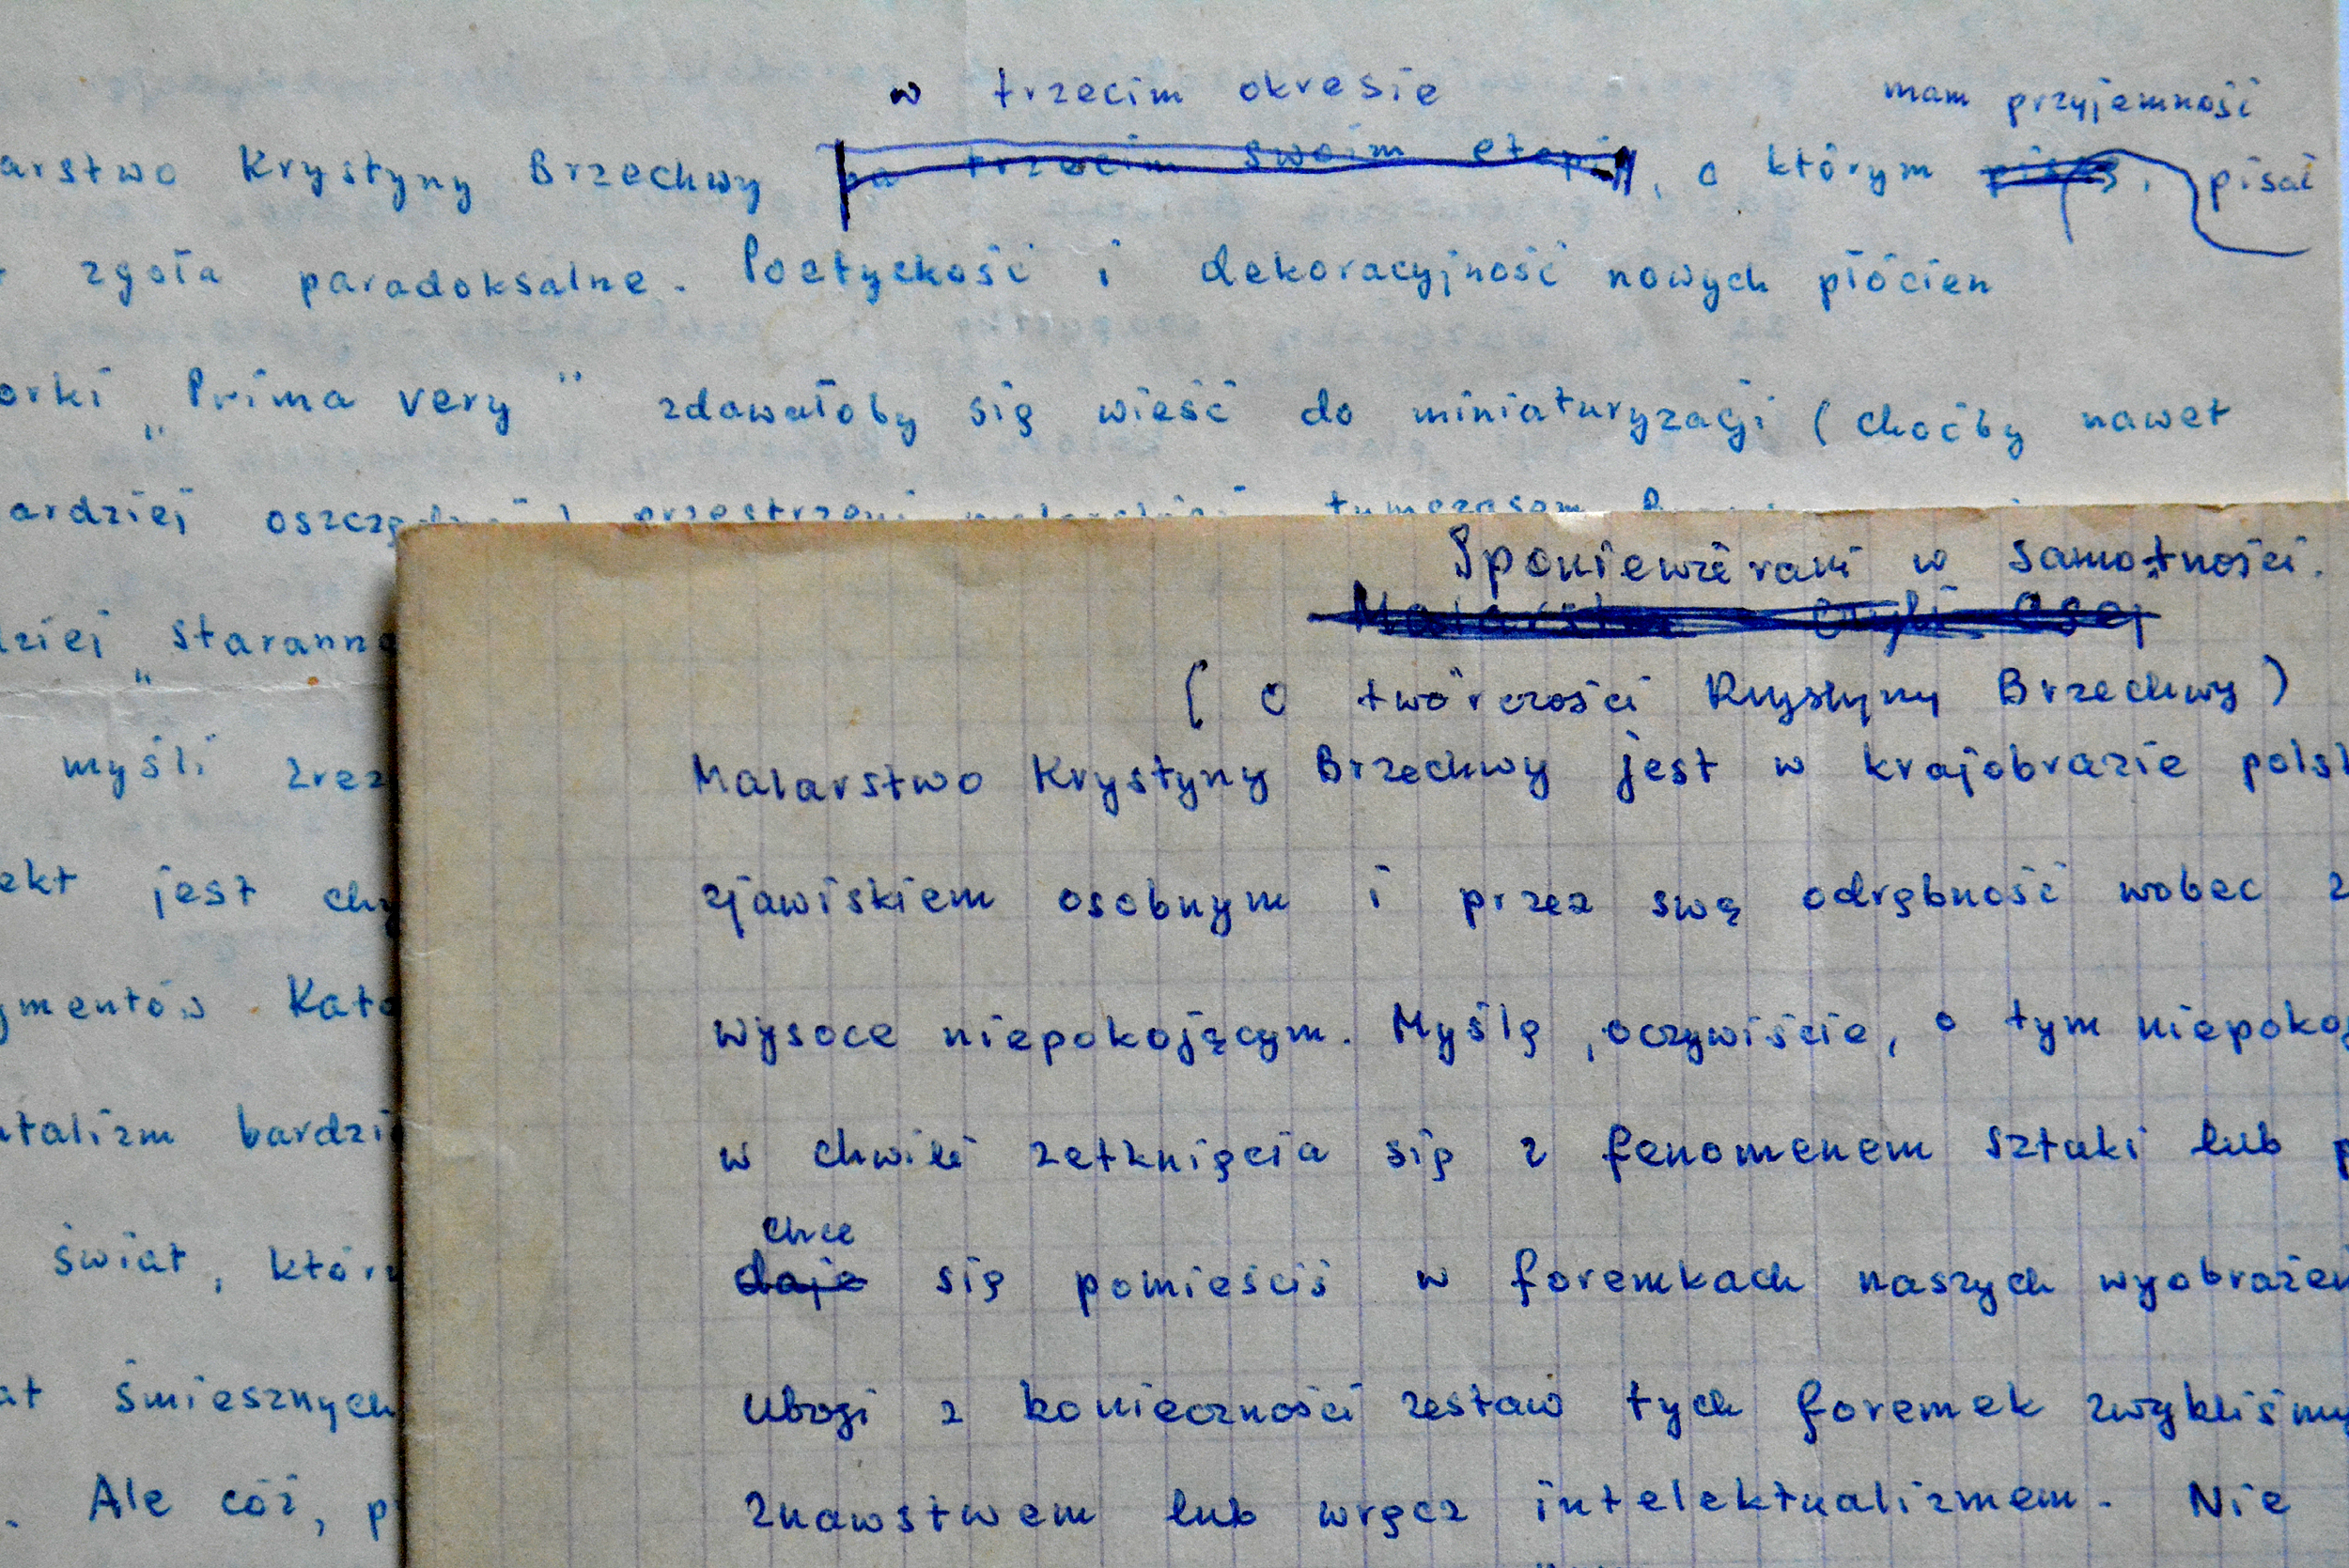 w trzecim okresie mam przyjemność
arstwo Krystyny Brzechwy na trzecim swoim etapie, o którym piszę, pisać
zgoła paradoksalne. Poetyckość i dekoracyjność nowych płócien
orki „Prima very" zdawałoby się wieść do miniaturyzacji (choćby nawet
ardziej przestrzeni tymczasem
dziej „staranno
myśli zrez
ekt jest chy
gmentów Kato
ntalizm bardzi
świat, któr
at śmiesznych
. Ale cóż, p
Sponiewierani w samotności.
Malarstwo czyli
(O twórczości Krystyny Brzechwy)
Malarstwo Krystyny Brzechwy jest w krajobrazie pols
zjawiskiem osobnym i przez swą odrębność wobec z
wysoce niepokojącym. Myślę, oczywiście, o tym niepoko
w chwili zetknięcia się z fenomenem sztuki lub p
chce
daje się pomieścić w foremkach naszych wyobrażeń
Ubogi z konieczności zestaw tych foremek zwykliśmy
znawstwem lub wręcz intelektualizmem. Nie